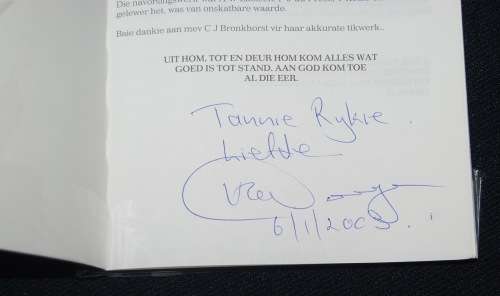 Die navorsingswerk
gelewer het, was van onskatbare waarde.
Baie dankie aan mev C J Bronkhorst vir haar akkurate tikwerk..
UIT HOM, TOT EN DEUR HOM KOM ALLES WAT
GOED IS TOT STAND. AAN GOD KOM TOE
AL DIE EER.
Tannie Rykie.
Liefde
6/1/2003.